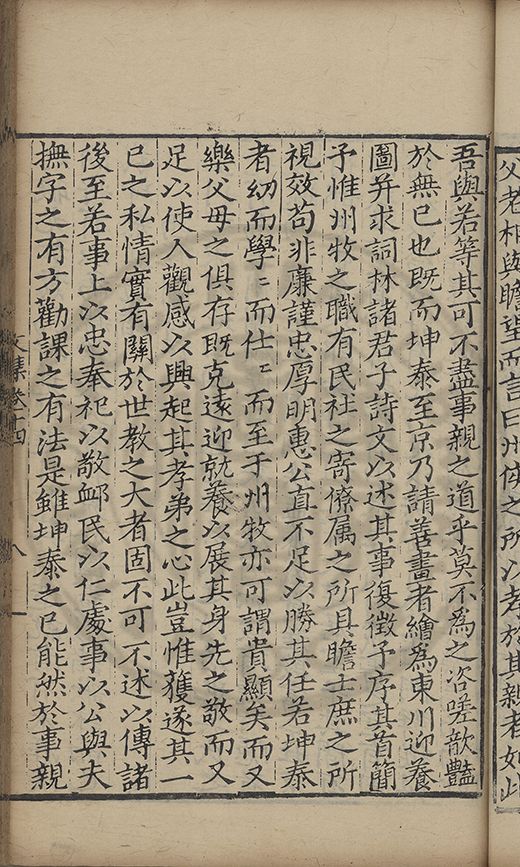 父老相與瞻望而言曰州使之所以孝於其親者如此
吾與若等其可不盡事親之道乎莫不爲之咨嗟歆豔
於無已也既而坤泰至京乃請善畫者繪爲東川迎養
圖并求詞林諸君子詩文以述其事復徵予序其首簡
予惟州牧之職有民社之寄僚属之所具瞻士庶之所
視效苟非廉謹忠厚明惠公直不足以勝其任若坤泰
者幼而學〻而仕〻而至于州牧亦可謂貴顯矣而又
樂父母之俱存既克遠迎就養以展其身先之敬而又
足以使人觀感以興起其孝弟之心此豈惟獲遂其一
已之私情實有關於世教之大者固不可不述以傳諸
後至若事上以忠奉祀以敬卹民以仁處事以公與夫
撫字之有方勸課之有法是雖坤泰之已能然於事親
文集卷十四
八